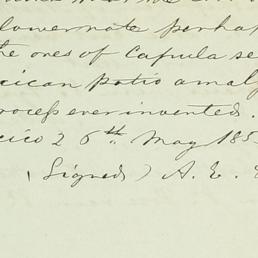 lower rate perhap
the ores of Capula se
xican patio amalg
rocess ever invented.
xico 26th May 185
(Signed) A. E.